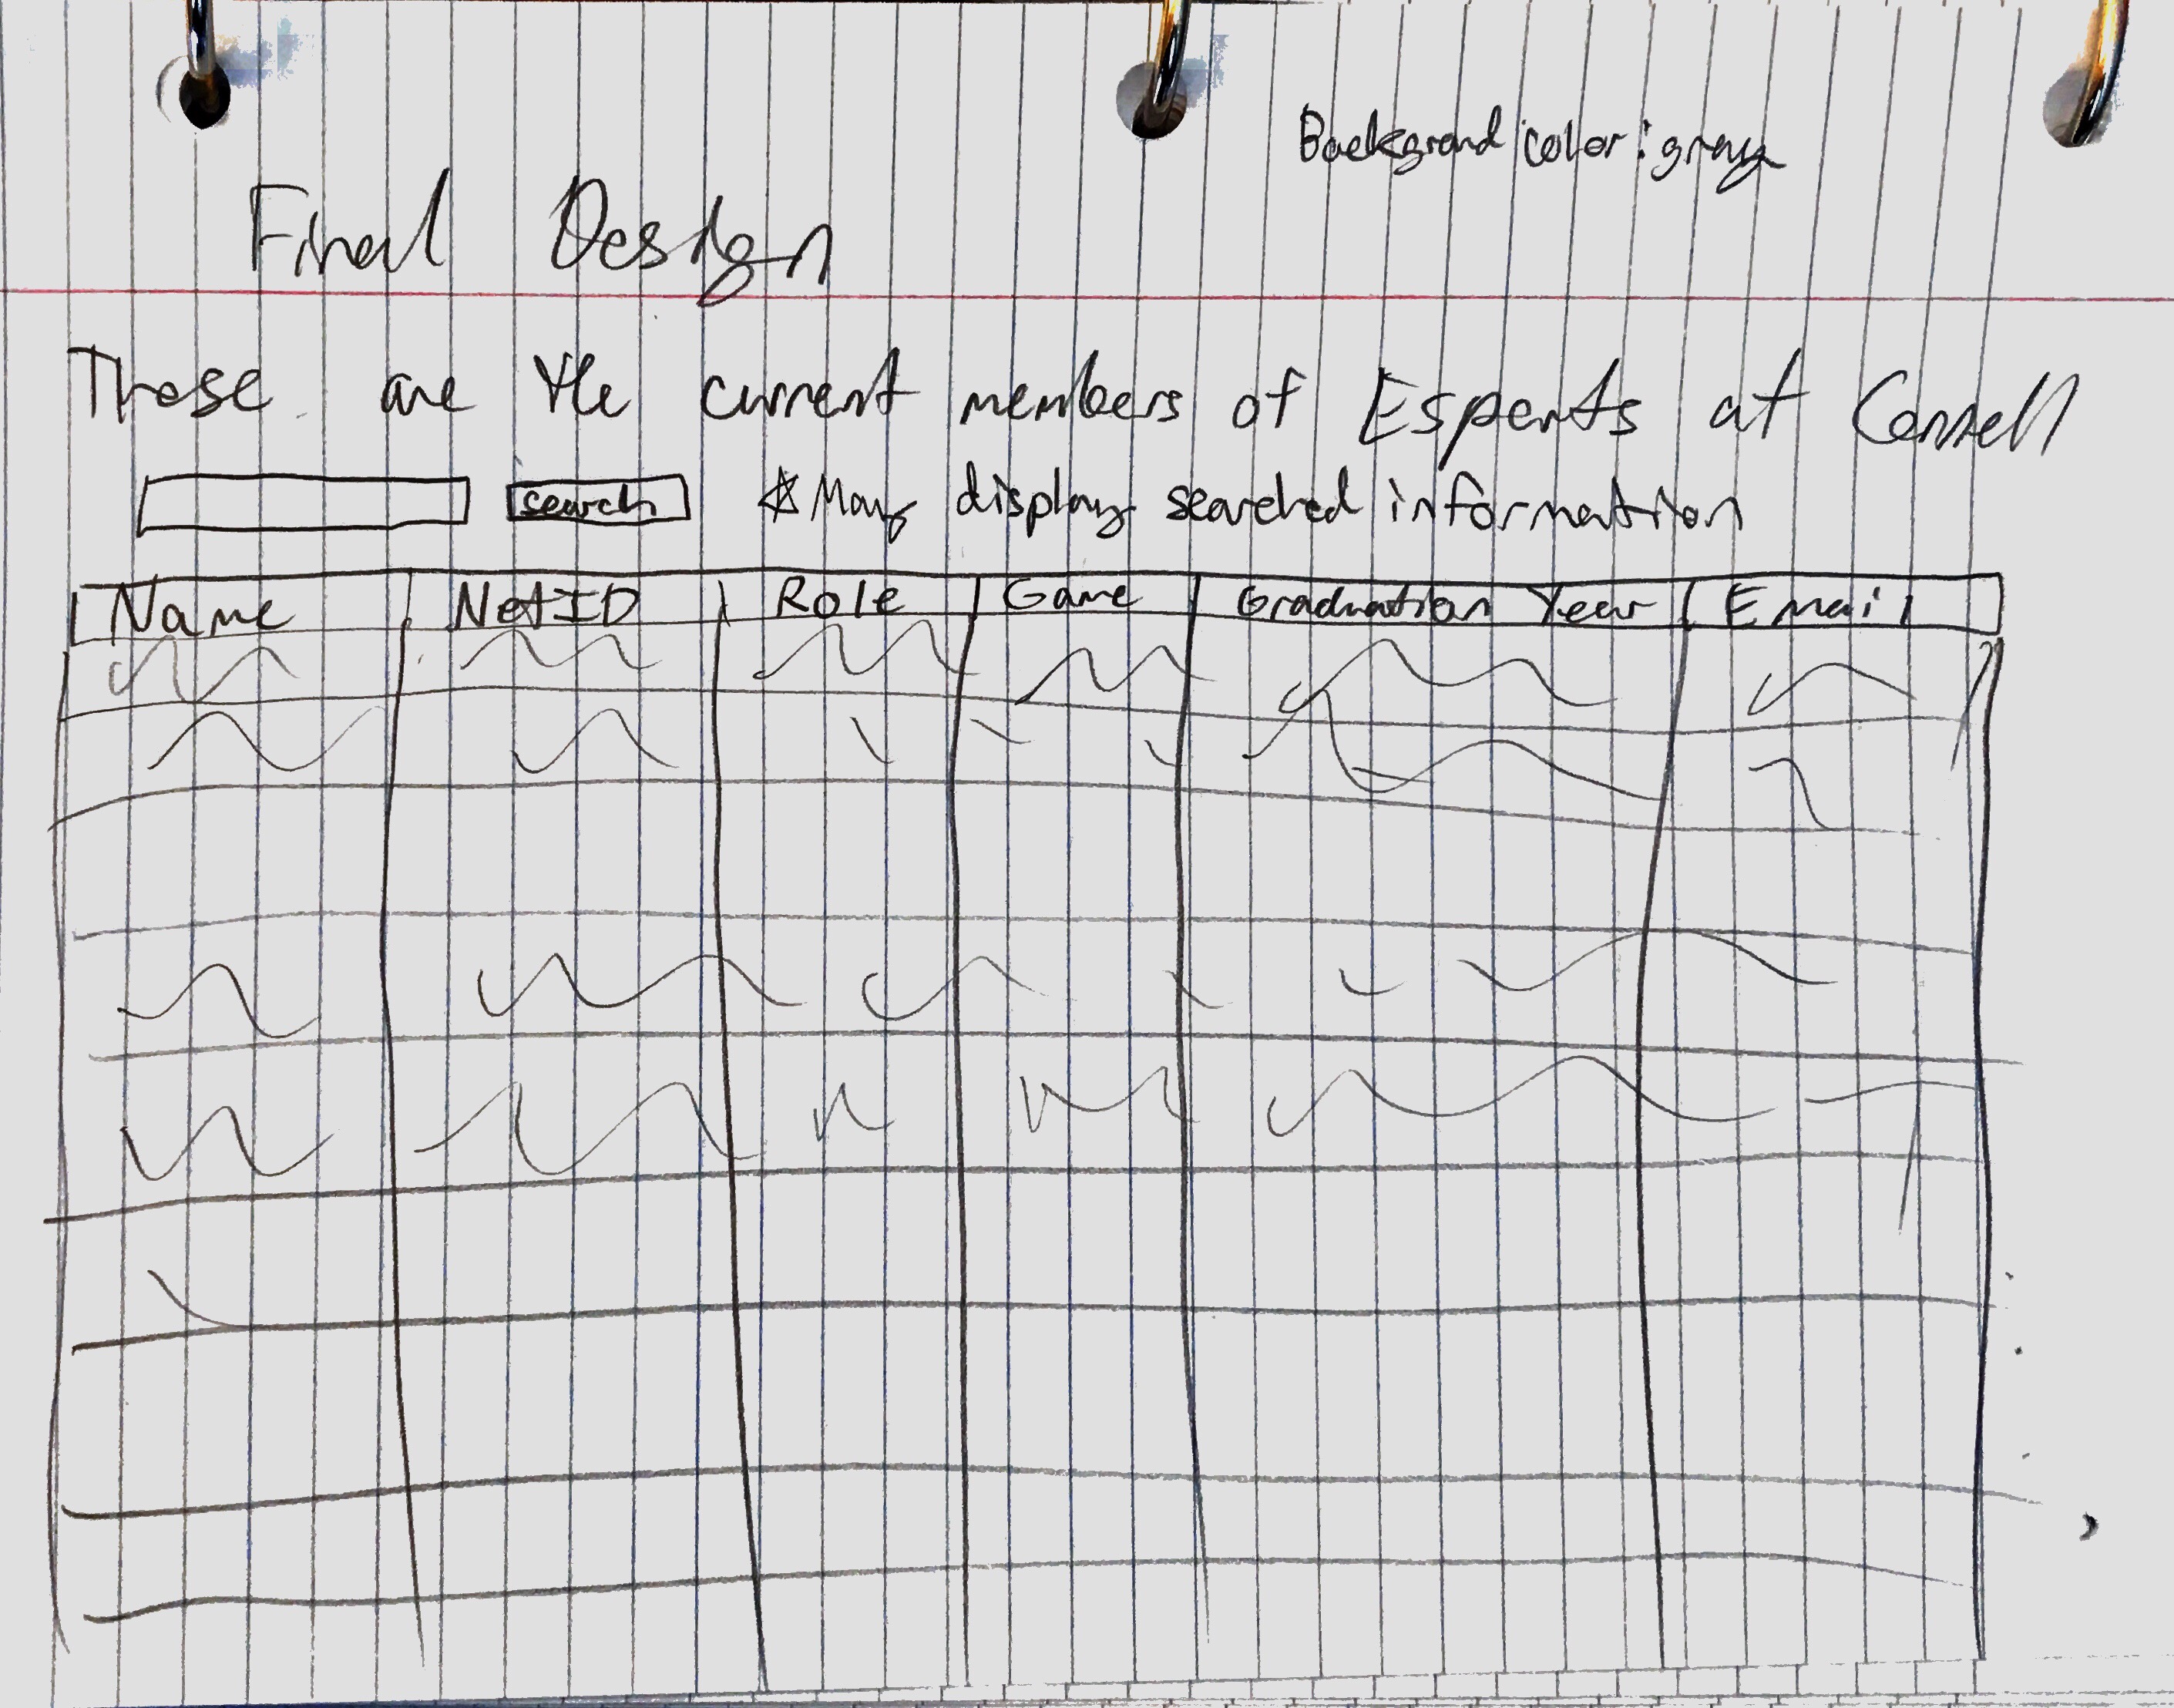 Background color: gray
Final Design
These are the current members of Esports at Cornell
search *May display searched information
Name NetID Role Game Graduation Year Email